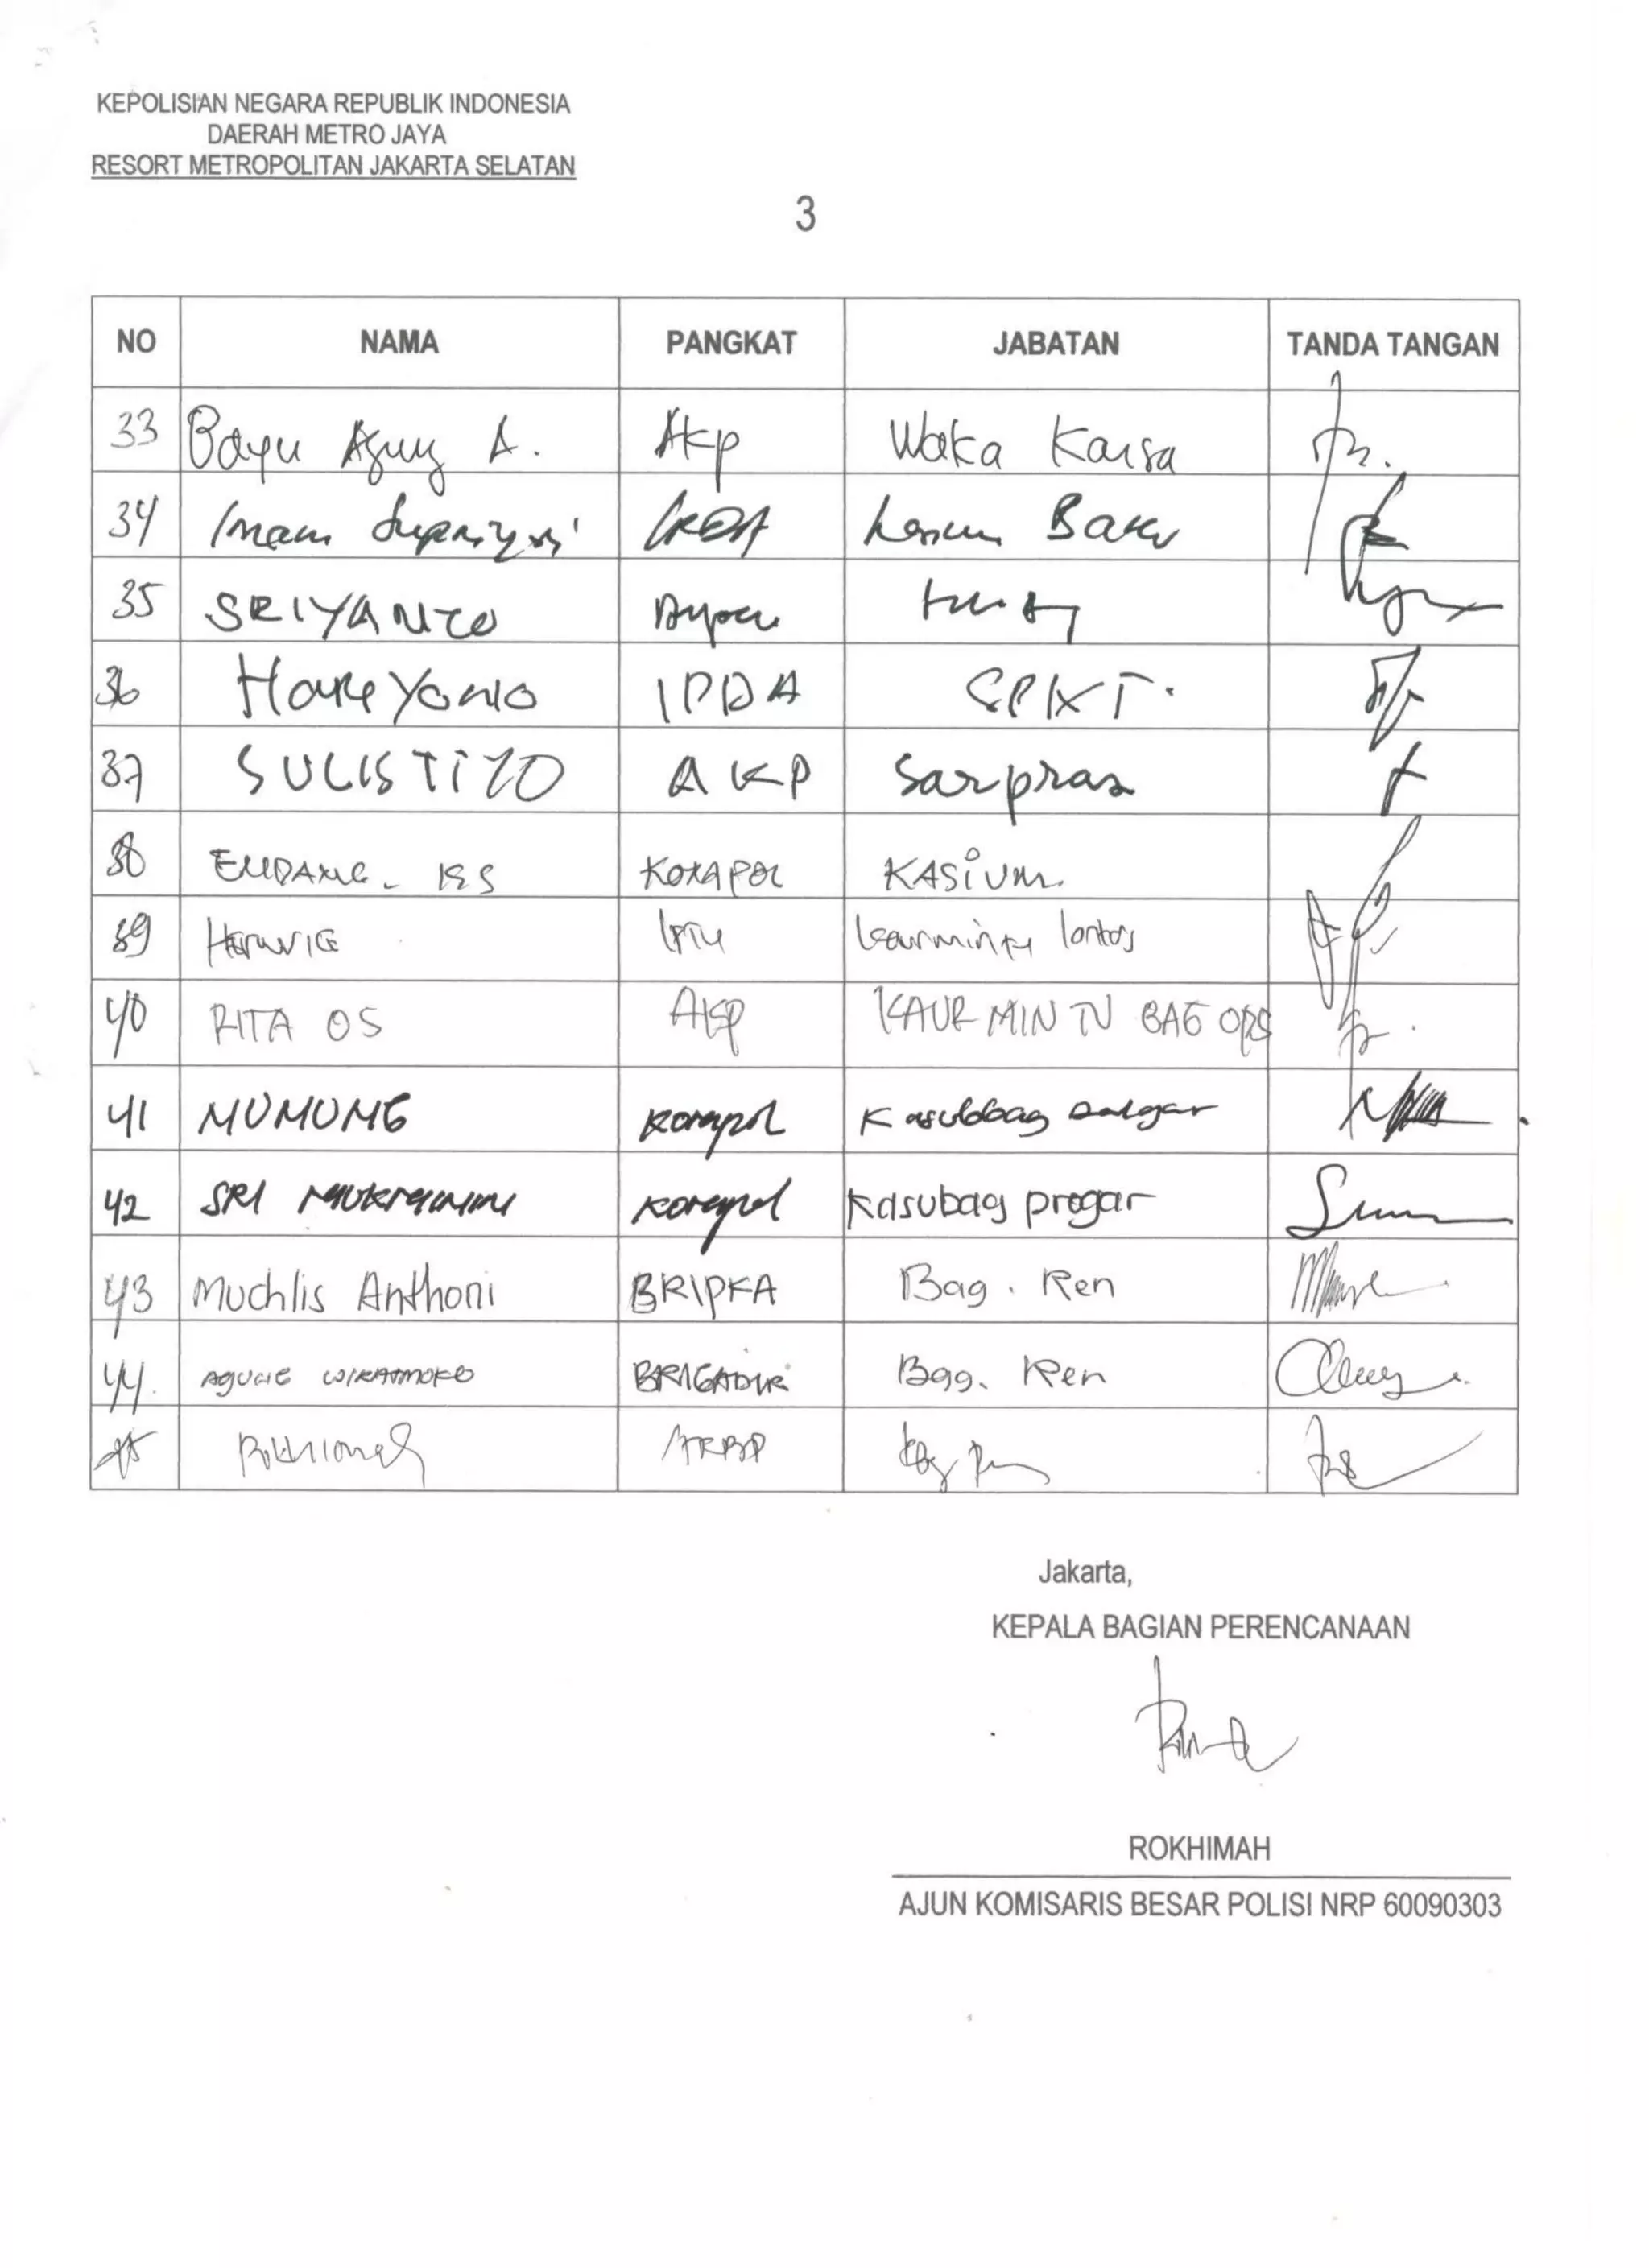 KEPOLISIAN NEGARA REPUBLIK INDONESIA
DAERAH METRO JAYA
RESORT METROPOLITAN JAKARTA SELATAN
3
NO NAMA PANGKAT JABATAN TANDA TANGAN
33 Bayu Agung A. Akp Waka
34 Imam
35 SRIYANTO
36 Hareyono IPDA SPKT.
37 SULISTIYO AKP Sarpras
38 ENDANG KOMPOL KASIUM.
39 IPTU
40 RITA OS AKP KAUR MIN TU BAG OPS
41 MUMUNG Kompol Kasubbag Dalgar
42 SRI Kompol Kasubag progar
43 Muchlis Anthoni BRIPKA Bag. Ren
44. AGUNG WIRATMOKO BRIGADIR Bag. Ren
45 Rokhimah AKBP
Jakarta,
KEPALA BAGIAN PERENCANAAN
ROKHIMAH
AJUN KOMISARIS BESAR POLISI NRP 60090303